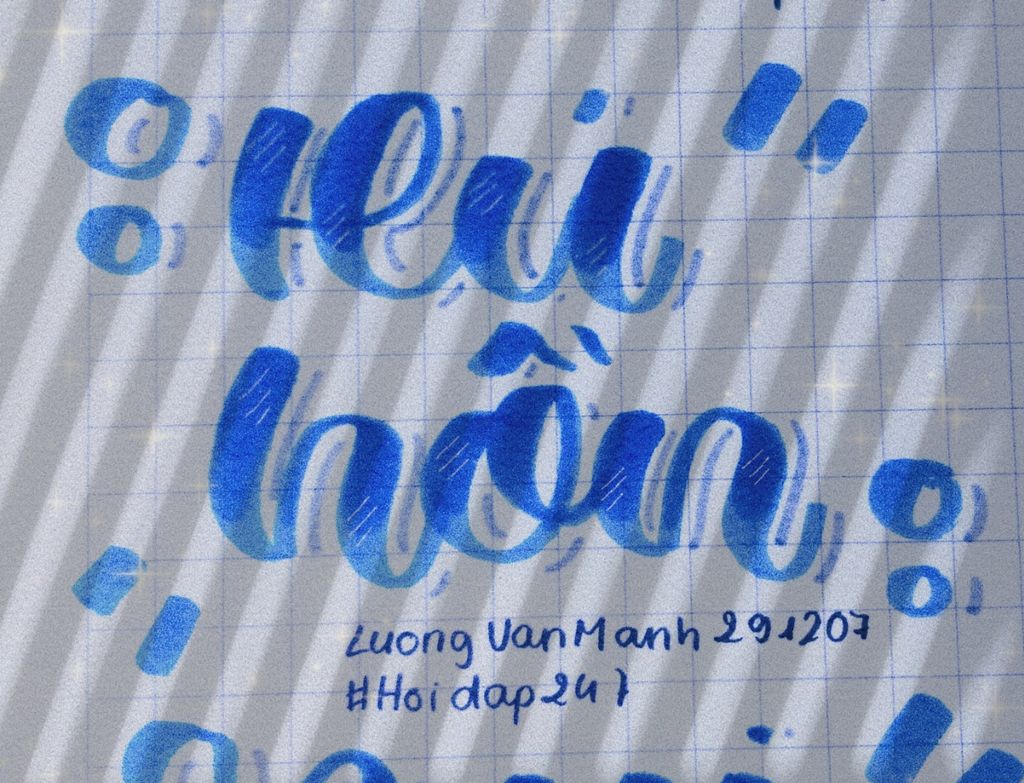 Hui
hồn
LuongVanManh291207
#Hoidap247